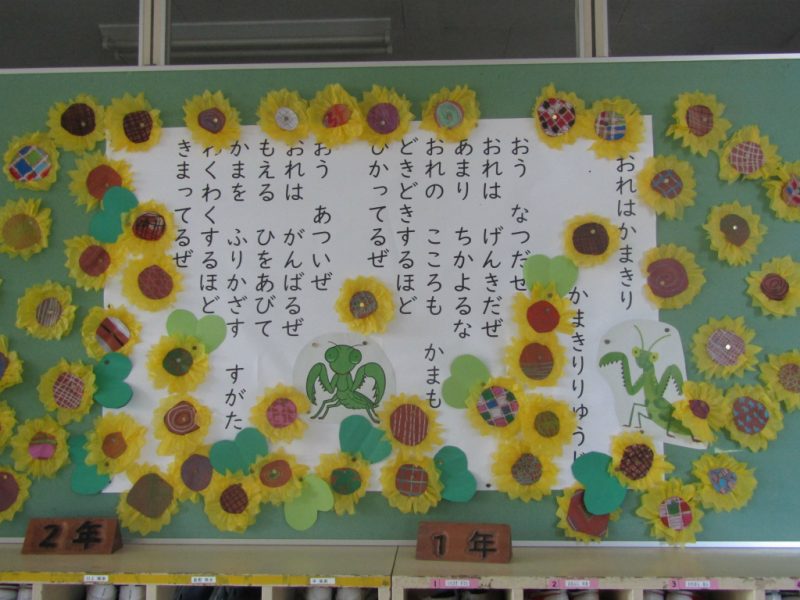 おれはかまきり
かまきりりゅうじ
おう なつだぜ
おれは げんきだぜ
あまり ちかよるな
おれの こころも かまも
どきどきするほど
ひかってるぜ
おう あついぜ
おれは がんばるぜ
もえる ひをあびて
かまを ふりかざす すがた
わくわくするほど
きまってるぜ
2年
1年
1
2
3